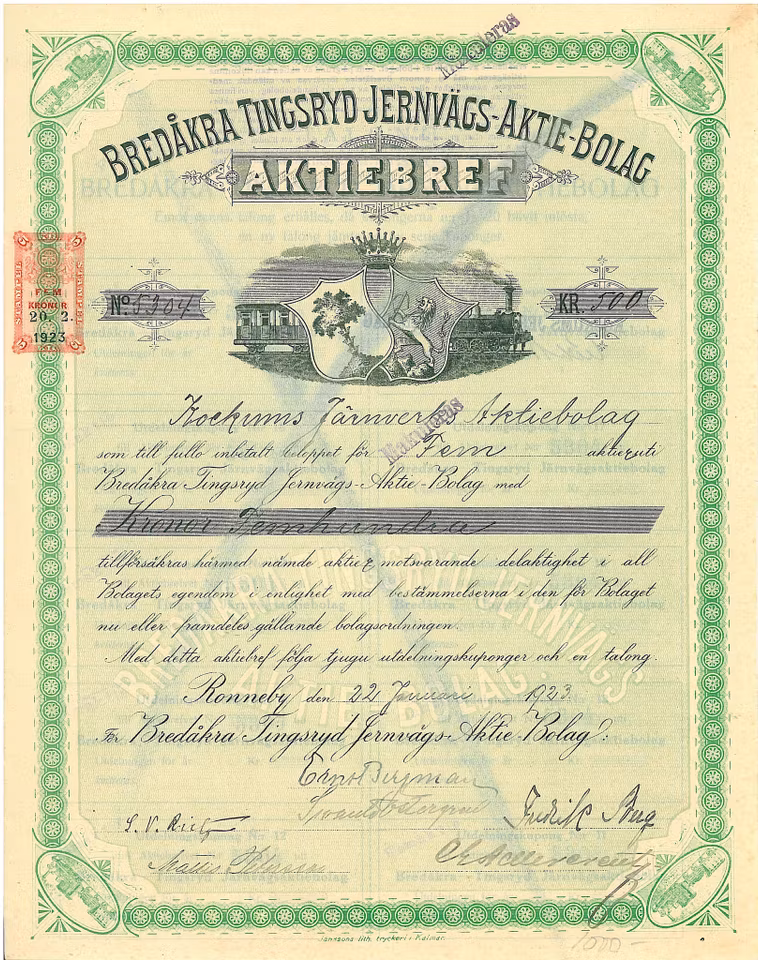 Makuleras
BREDÅKRA TINGSRYD JERNVÄGS-AKTIE-BOLAG
AKTIEBREF
STÄMPEL
5
FEM
KRONOR
20. 2.
1923
No 5304
KR. 500
Kockums Järnverks Aktiebolag
Makuleras
som till fullo inbetalt beloppet för Fem aktier uti
Bredåkra Tingsryd Jernvägs-Aktie-Bolag med
Kronor Femhundra
tillförsäkras härmed nämde aktier motsvarande delaktighet i all
Bolagets egendom i enlighet med bestämmelserna i den för Bolaget
nu eller framdeles gällande bolagsordningen.
Med detta aktiebref följa tjugu utdelningskuponger och en talong.
Ronneby den 22 Januari 1923
För Bredåkra Tingsryd Jernvägs-Aktie-Bolag:
Ernst Bergman
Fredrik Berg
Janssons lith. tryckeri i Kalmar.
1000-